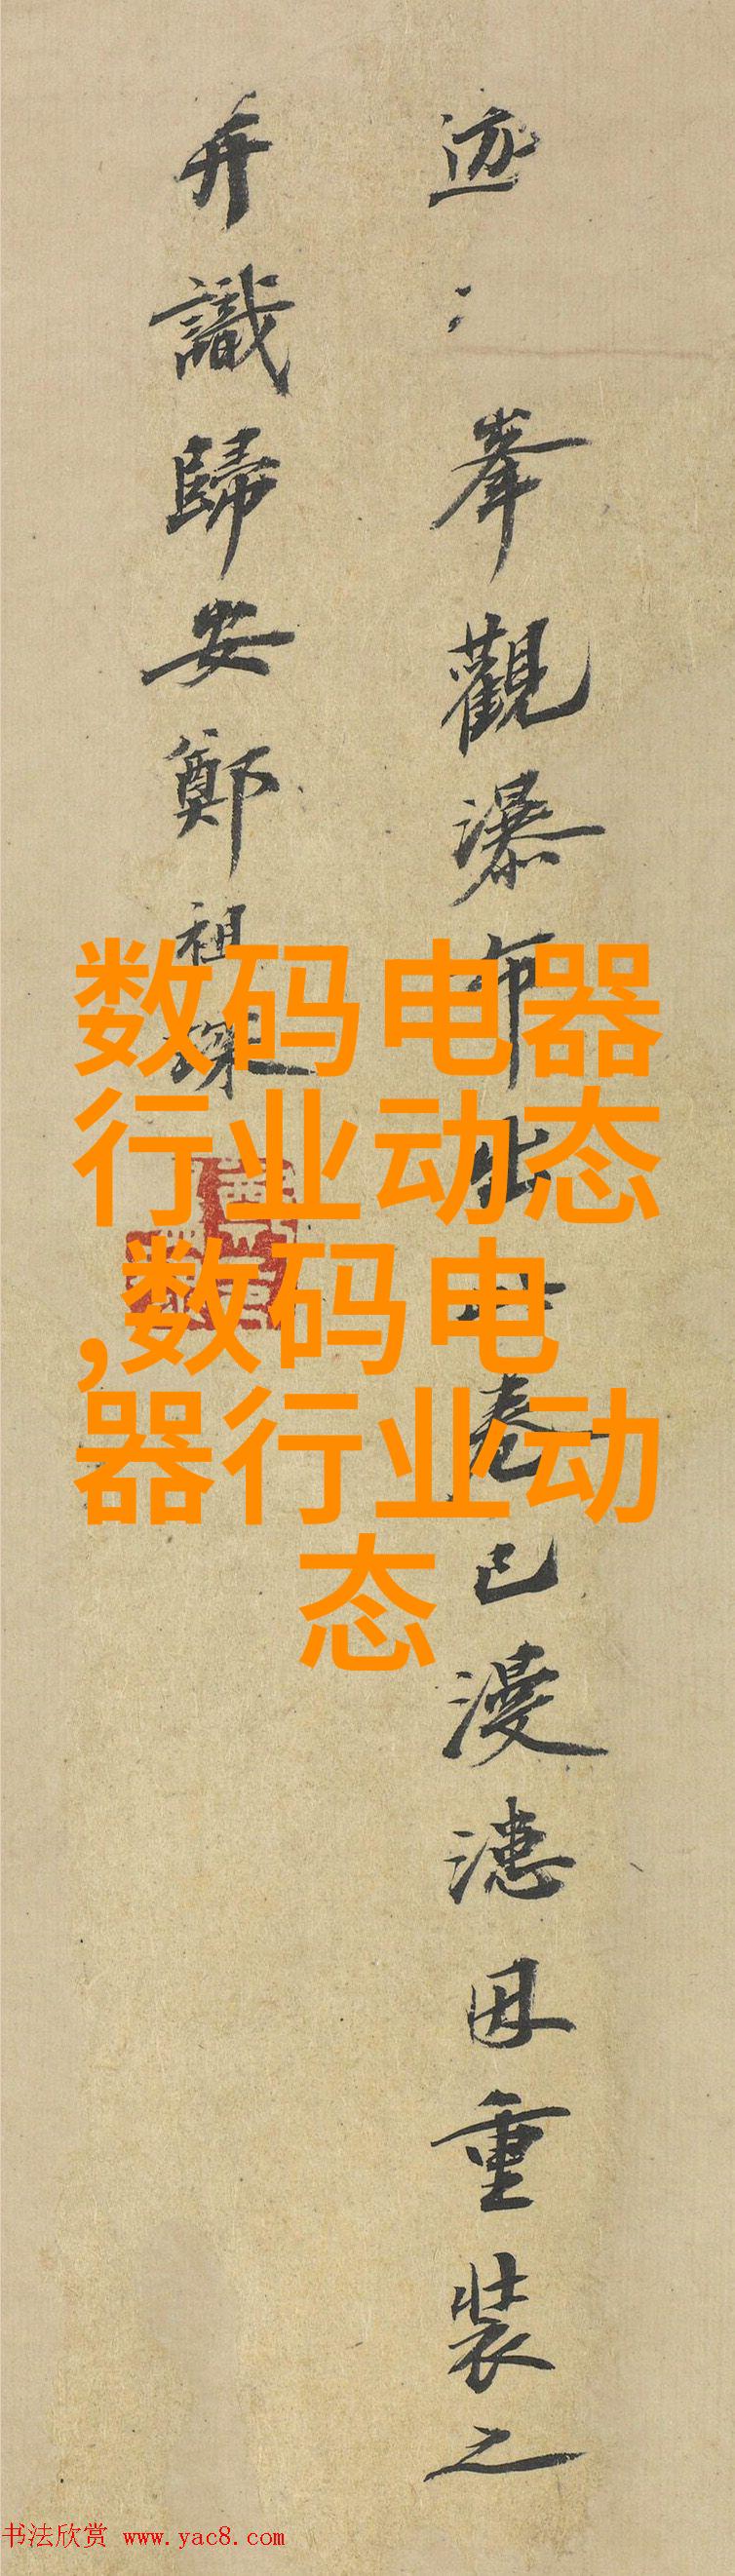 迹峯觀瀑布卷已漫漶因重裝之
并識歸安鄭祖琛
数码电器
行业动态
,数码电
器行业动
态
书法欣赏 www.yac8.com